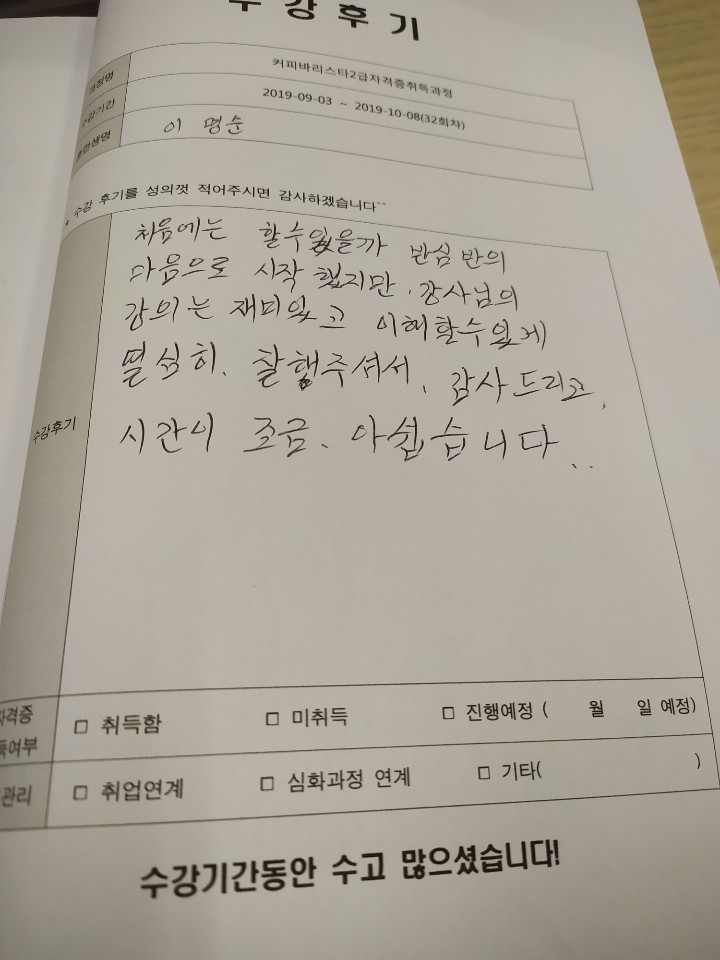 수 강 후 기
과정명 커피바리스타2급자격증취득과정
수강기간 2019-09-03 ~ 2019-10-08(32회차)
훈련생명 이 명순
* 수강 후기를 성의껏 적어주시면 감사하겠습니다^^
처음에는 할수있을까 반심 반의
마음으로 시작 했지만, 강사님의
강의는 재미있고 이해할수있게
열심히. 잘해주셔서, 감사드리고,
수강후기
시간이 조금. 아쉽습니다..
자격증
득여부
□ 취득함 □ 미취득 □ 진행예정 ( 월 일 예정)
관리 □ 취업연계 □ 심화과정 연계 □ 기타( )
수강기간동안 수고 많으셨습니다!